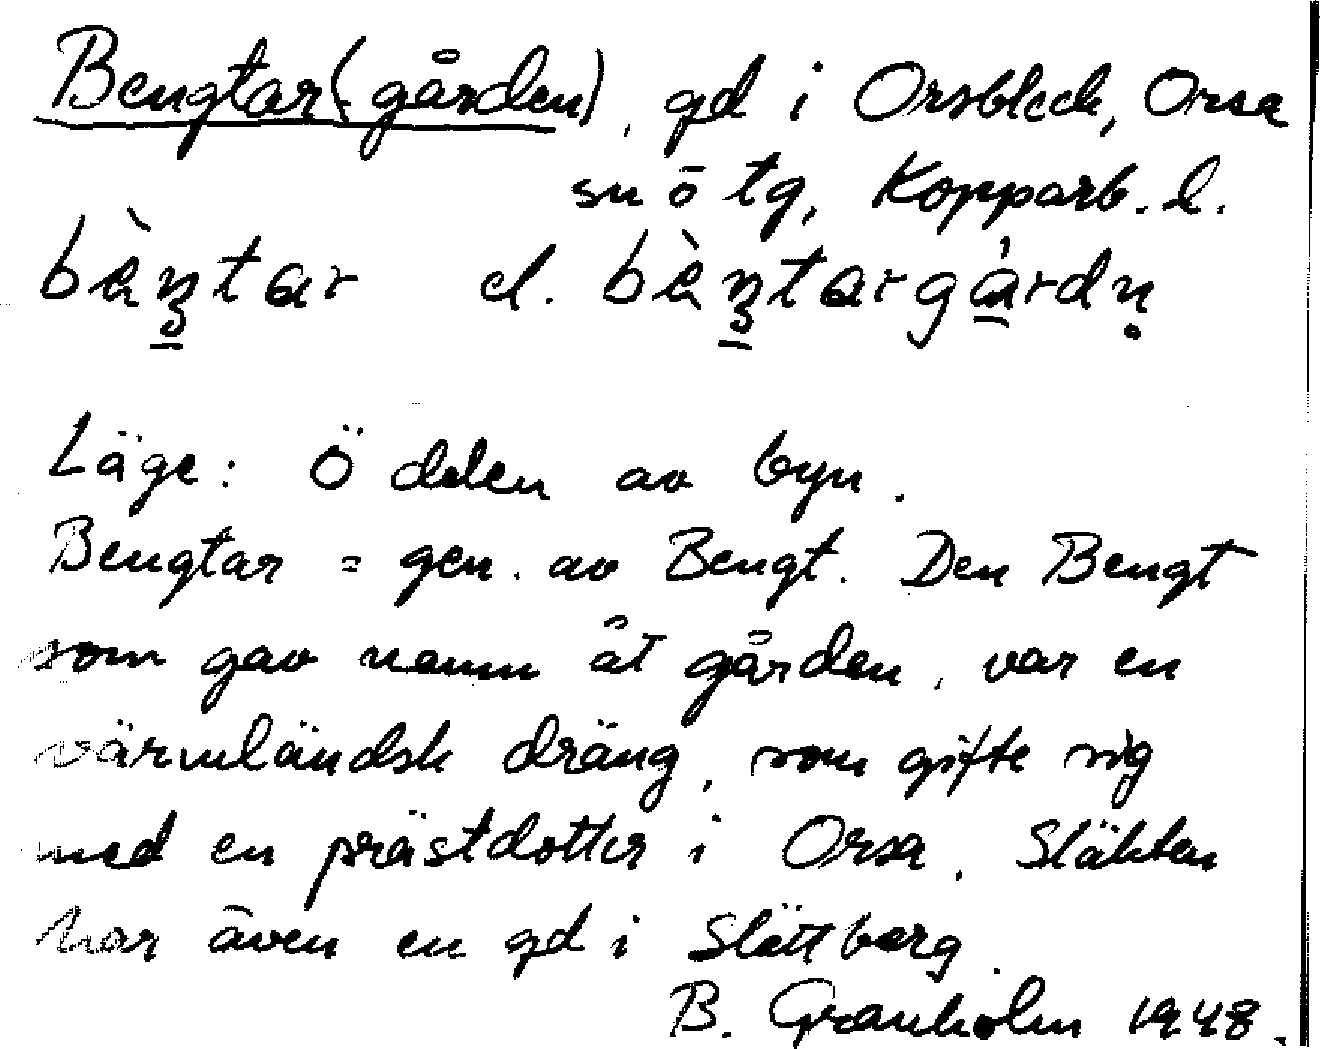 Bengtar(-gården), gd i Orsbleck, Orsa
sn o tg, Kopparb. l.
bὲŋtar el. bὲŋtargårdṇ
Läge: Ö delen av byn.
Bengtar = gen. av Bengt. Den Bengt
som gav namn åt gården, var en
värmländsk dräng, som gifte sig
med en prästdotter i Orsa. Släkten
har även en gd i Slättberg.
B. Granholm 1948.